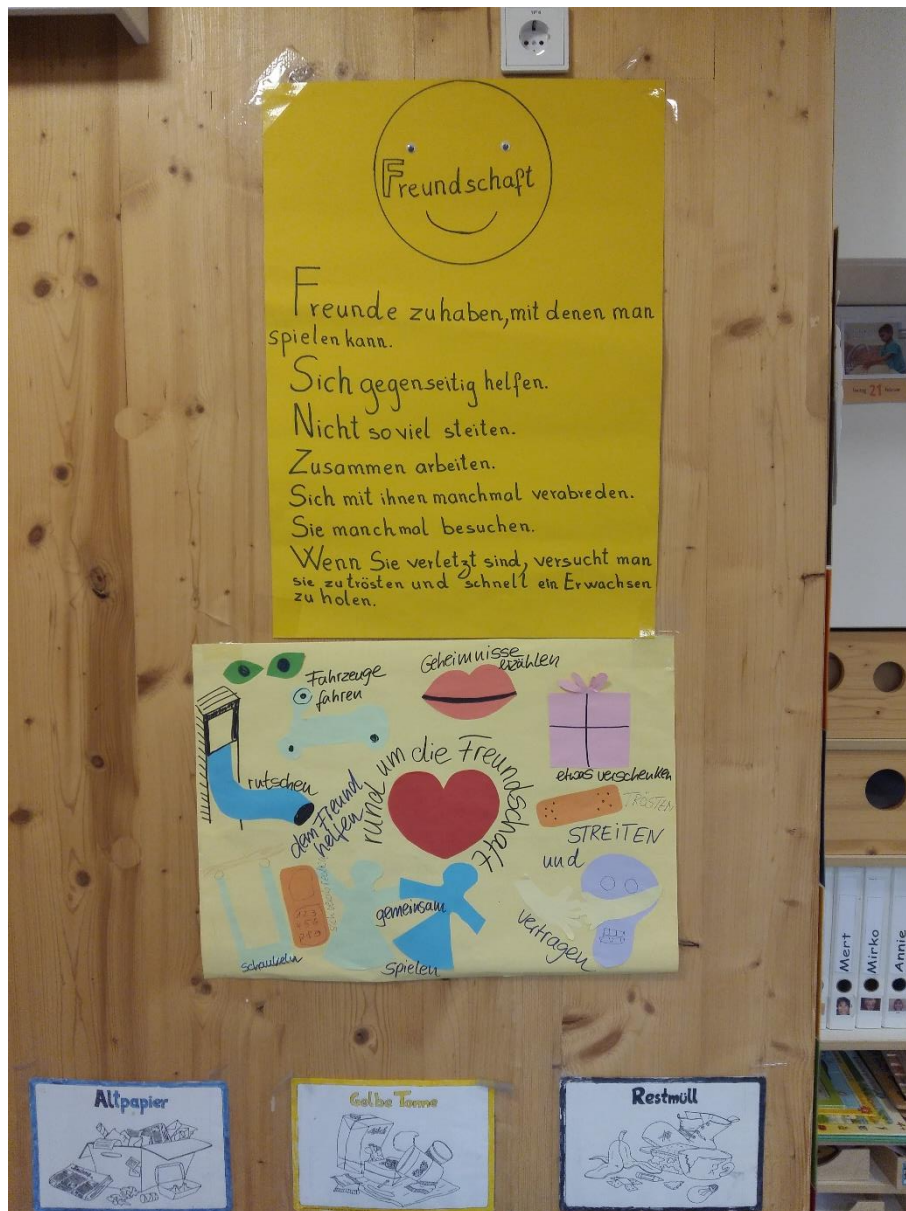 Freundschaft
Freunde zuhaben, mit denen man
spielen kann.
Sich gegenseitig helfen.
Nicht soviel steiten.
Zusammen arbeiten.
Sich mit ihnen manchmal verabreden.
Sie manchmal besuchen.
Wenn Sie verletzt sind, versucht man
sie zu trösten und schnell ein Erwachsen
zu holen.
Fahrzeuge
fahren
Geheimnisse
erzählen
rutschen
dem Freund
helfen
rund um die Freundschaft
etwas verschenken
TRÖSTEN
STREITEN
und
vertragen
gemeinsam
spielen
schaukeln
21
Mert
Mirko
Annie
Altpapier
Gelbe Tonne
Restmüll